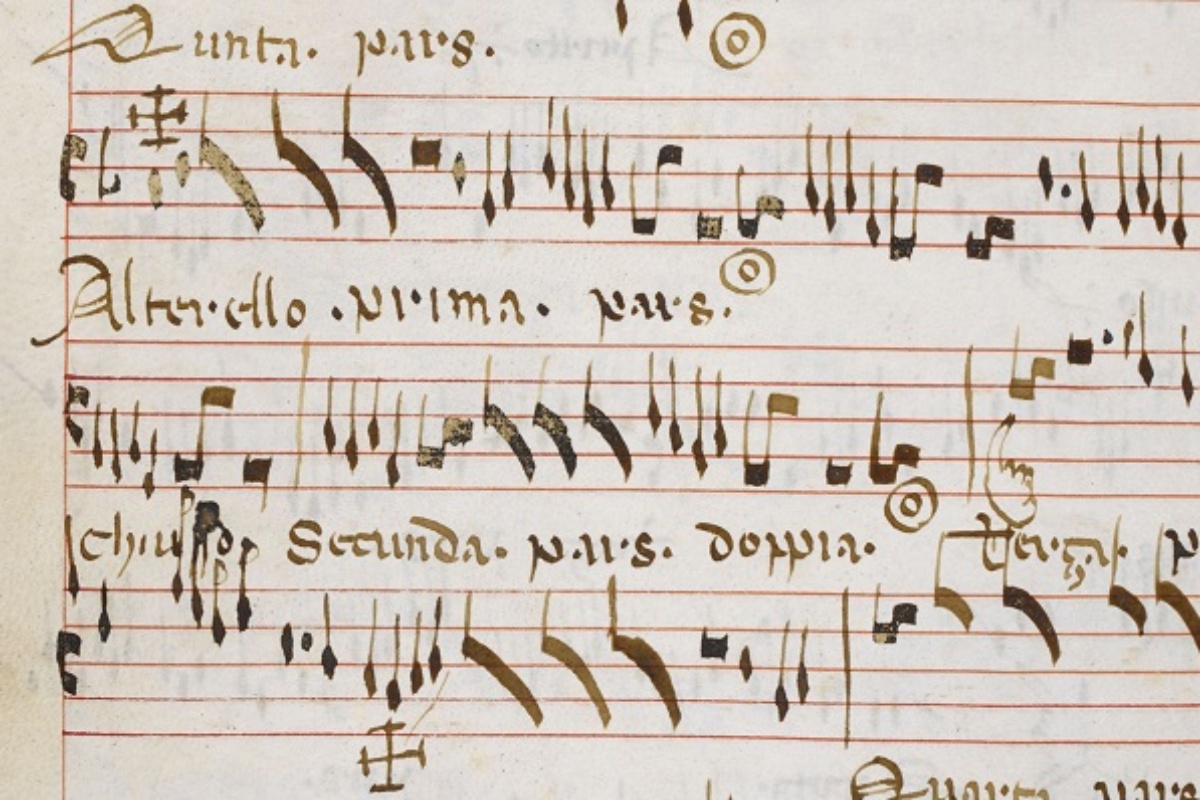 Quinta. pars.
Alterello. prima. pars.
chiuso Secunda. pars. doppia. Terça. p
Quarta pars